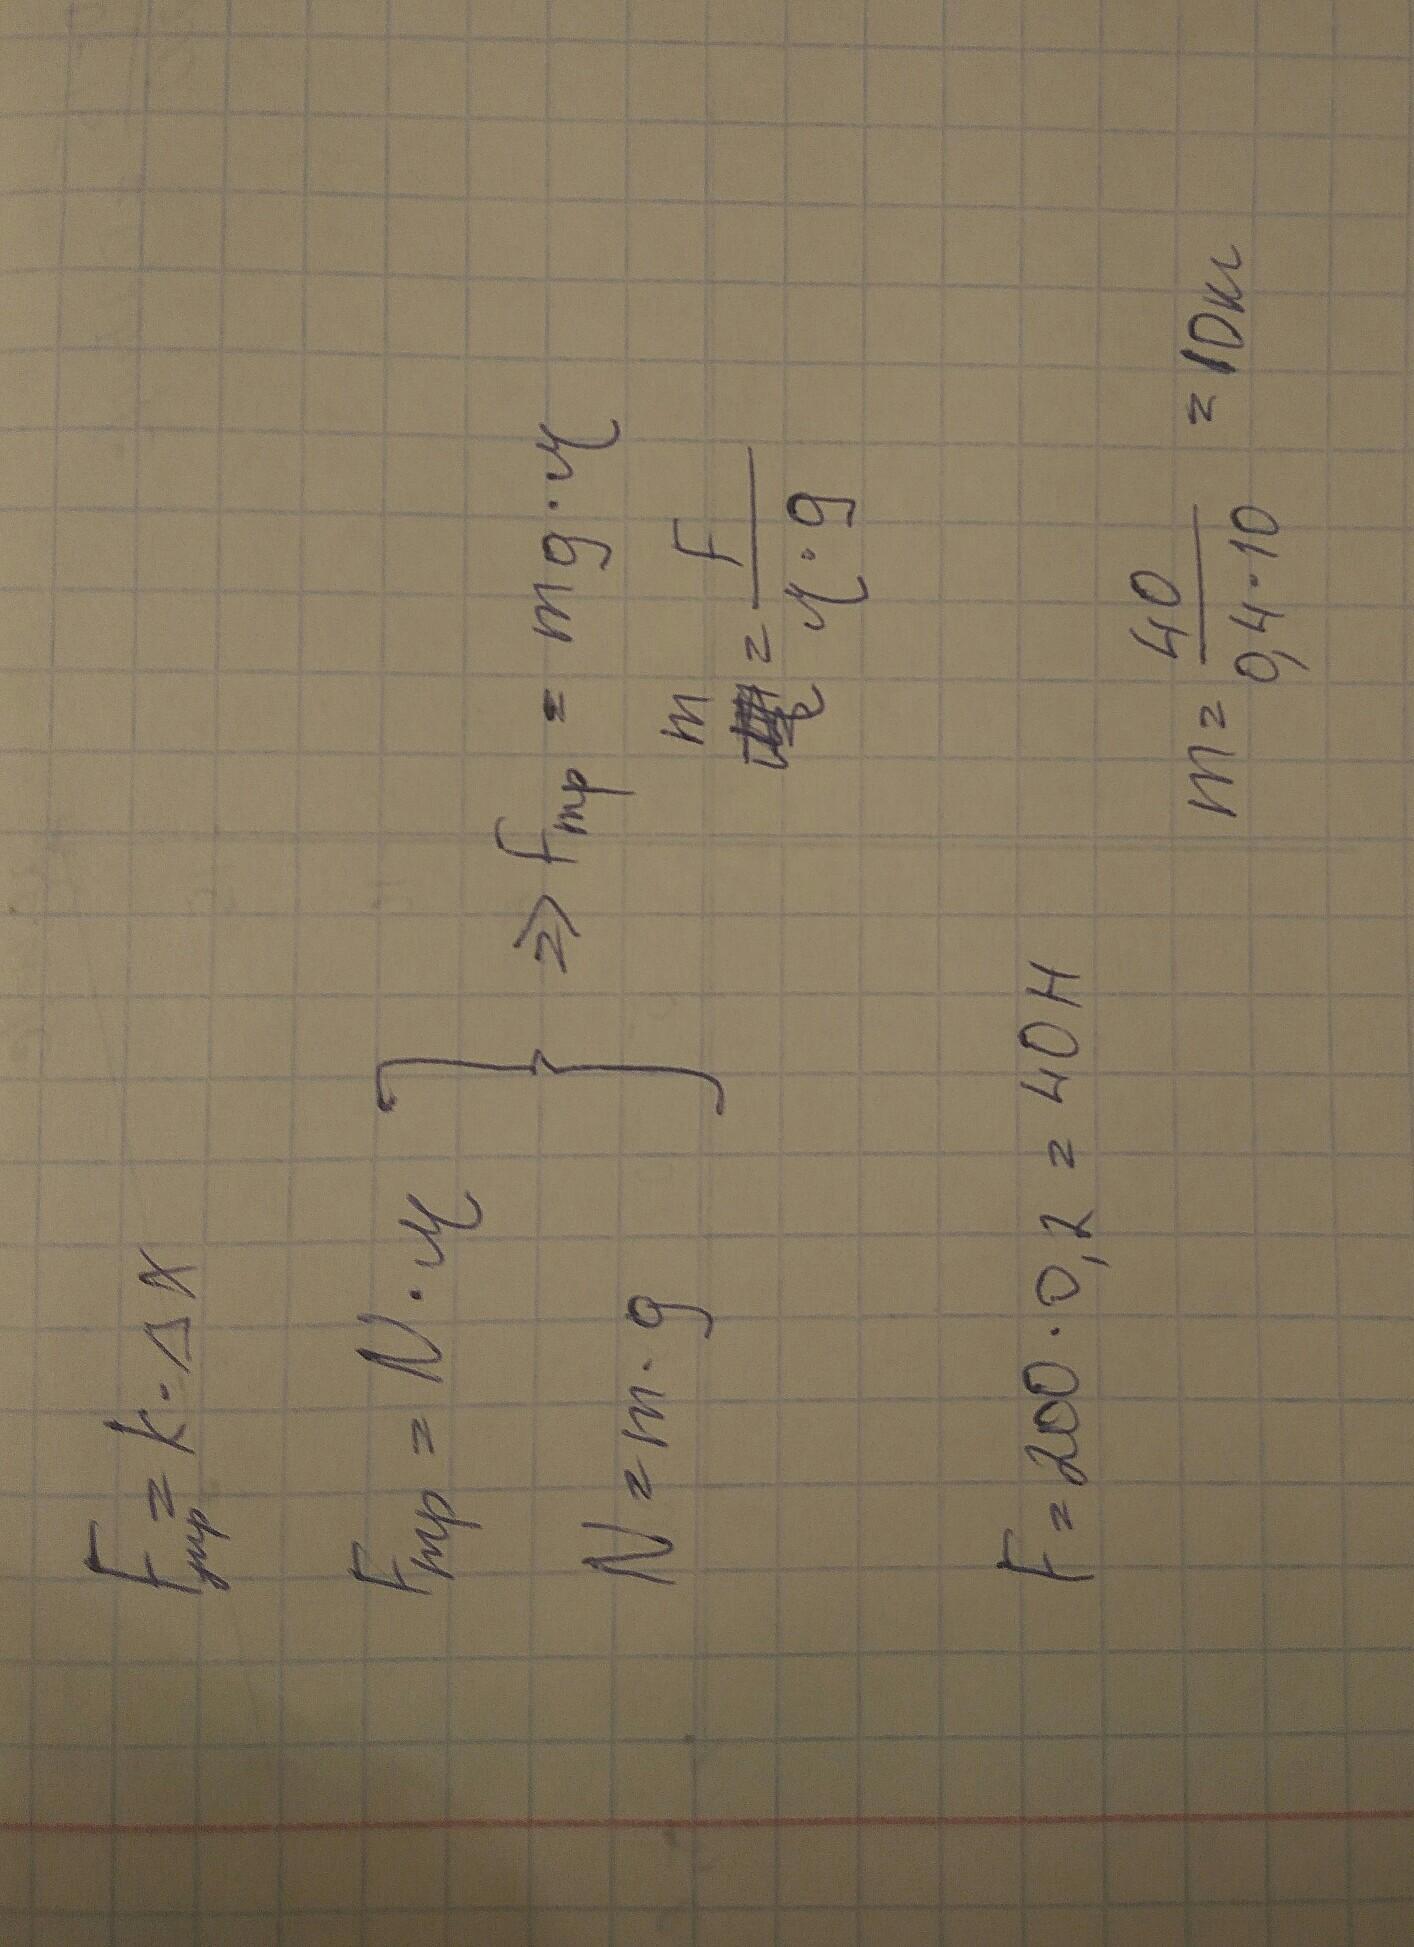 Fупр = k · Δx
Fтр = N · μ
N = m · g
⇒ Fтр = mg · μ
m = F / μ · g
F = 200 · 0,2 = 40 Н
m = 40 / 0,4 · 10 = 10 кг